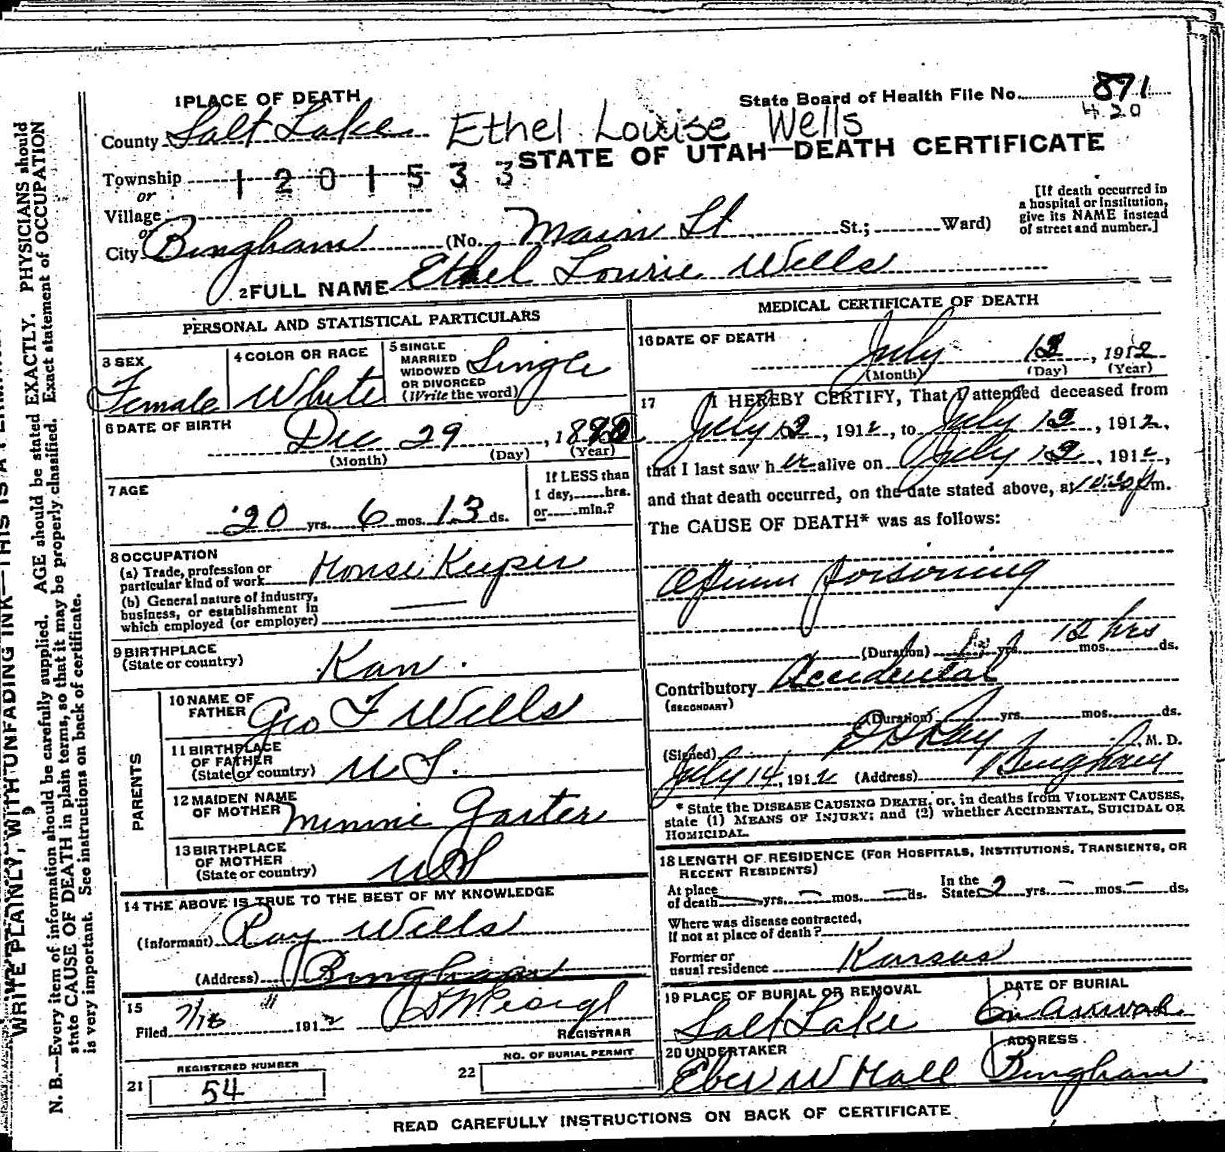 1 PLACE OF DEATH
State Board of Health File No. 871
420
County Salt Lake
Ethel Louise Wells
STATE OF UTAH—DEATH CERTIFICATE
Township
1 2 0 1 5 3 3
or
Village
or
City Bingham (No. Main St St.; Ward)
[If death occurred in
a hospital or institution,
give its NAME instead
of street and number.]
2 FULL NAME Ethel Lourie Wells
PERSONAL AND STATISTICAL PARTICULARS
3 SEX
Female
4 COLOR OR RACE
White
5 SINGLE
MARRIED
WIDOWED
OR DIVORCED
(Write the word)
Single
6 DATE OF BIRTH
Dec 29, 18
(Month) (Day) (Year)
7 AGE
20 yrs. 6 mos. 13 ds.
If LESS than
1 day, hrs.
or min.?
8 OCCUPATION
(a) Trade, profession or
particular kind of work House Keeper
(b) General nature of industry,
business, or establishment in
which employed (or employer)
9 BIRTHPLACE
(State or country)
Kan.
PARENTS
10 NAME OF
FATHER Geo F Wells
11 BIRTHPLACE
OF FATHER
(State or country) U S.
12 MAIDEN NAME
OF MOTHER Minnie Garter
13 BIRTHPLACE
OF MOTHER
(State or country) U S
14 THE ABOVE IS TRUE TO THE BEST OF MY KNOWLEDGE
(Informant) Ray Wells
(Address) Bingham
15
Filed 7/18 1912
REGISTRAR
REGISTERED NUMBER
21 54
NO. OF BURIAL PERMIT
22
MEDICAL CERTIFICATE OF DEATH
16 DATE OF DEATH
July 12, 1912
(Month) (Day) (Year)
17 I HEREBY CERTIFY, That I attended deceased from
July 12, 1912, to July 12, 1912,
that I last saw h er alive on July 12, 1912,
and that death occurred, on the date stated above, at m.
The CAUSE OF DEATH* was as follows:
Opium poisoning
(Duration) yrs. mos. ds.
12 hrs
Contributory Accidental
(SECONDARY)
(Duration) yrs. mos. ds.
(Signed) D Ray, M. D.
July 14, 1912 (Address) Bingham
* State the DISEASE CAUSING DEATH, or, in deaths from VIOLENT CAUSES,
state (1) MEANS OF INJURY; and (2) whether ACCIDENTAL, SUICIDAL OR
HOMICIDAL.
18 LENGTH OF RESIDENCE (FOR HOSPITALS, INSTITUTIONS, TRANSIENTS, OR
RECENT RESIDENTS)
At place
of death — yrs. — mos. — ds.
In the
State 2 yrs. — mos. — ds.
Where was disease contracted,
if not at place of death?
Former or
usual residence Kansas
19 PLACE OF BURIAL OR REMOVAL
Salt Lake
DATE OF BURIAL
On arrival
20 UNDERTAKER
Eber W Hall
ADDRESS
Bingham
READ CAREFULLY INSTRUCTIONS ON BACK OF CERTIFICATE
WRITE PLAINLY, WITH UNFADING INK—THIS IS A
N. B.—Every item of information should be carefully supplied. AGE should be stated EXACTLY. PHYSICIANS should
state CAUSE OF DEATH in plain terms, so that it may be properly classified. Exact statement of OCCUPATION
is very important. See instructions on back of certificate.